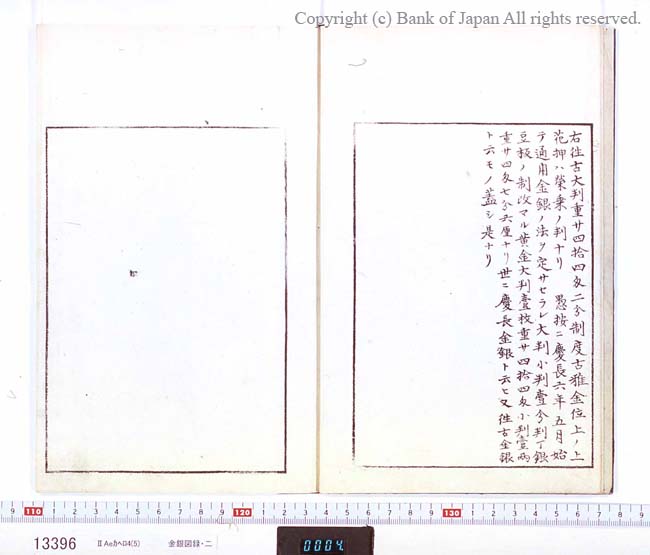 Copyright (c) Bank of Japan All rights reserved.
右往古大判重サ四拾四匁二分制度古雅金位上ノ上
花押ハ榮乗ノ判ナリ　愚按ニ慶長六年五月始
テ通用金銀ノ法ヲ定サセラレ大判小判壹分判丁銀
豆板ノ制改マル黄金大判壹枚重サ四拾四匁小判壹兩
重サ四匁七分六厘ナリ世ニ慶長金銀ト云ヒ又往古金銀
ト云モノ蓋シ是ナリ
9 110 1 2 3 4 5 6 7 8 9 120 1 2 3 4 5 6 7 8 9 130 1 2 3 4 5 6 7 8
13396 ⅡAeカヘロ4(5) 金銀図録・二
0004